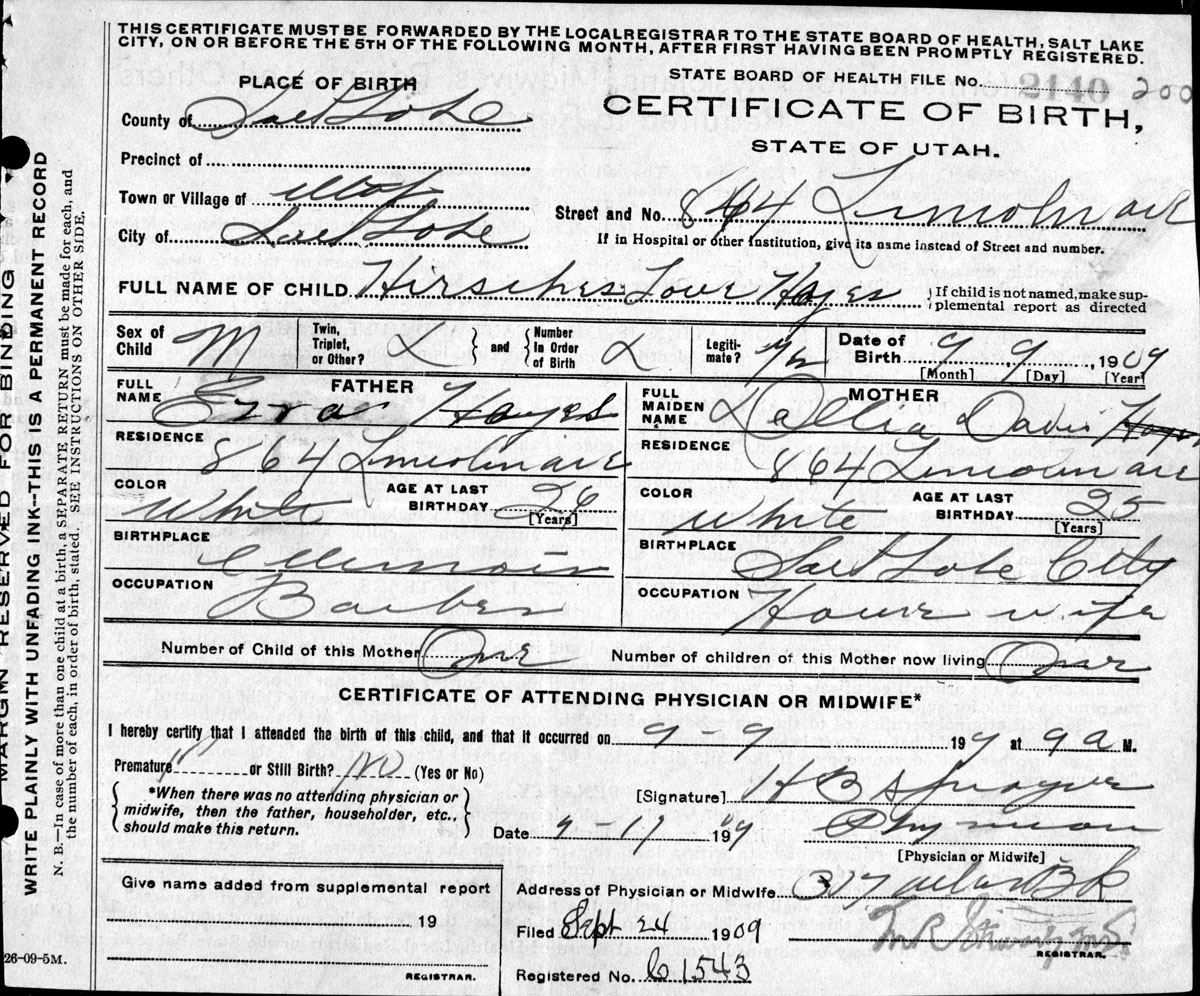 THIS CERTIFICATE MUST BE FORWARDED BY THE LOCALREGISTRAR TO THE STATE BOARD OF HEALTH, SALT LAKE
CITY, ON OR BEFORE THE 5TH OF THE FOLLOWING MONTH, AFTER FIRST HAVING BEEN PROMPTLY REGISTERED.
PLACE OF BIRTH
County of Salt Lake
Precinct of
Town or Village of
City of Salt Lake
STATE BOARD OF HEALTH FILE No. 2140 200
CERTIFICATE OF BIRTH,
STATE OF UTAH.
Street and No. 864 Lincoln ave
If in Hospital or other Institution, give its name instead of Street and number.
FULL NAME OF CHILD Love Hayes
If child is not named, make sup-
plemental report as directed
Sex of Child M
Twin, Triplet, or Other?
and
Number In Order of Birth
Legiti-mate?
Date of Birth 9 9 1909
[Month] [Day] [Year]
FATHER
FULL NAME Hayes
RESIDENCE 864 Lincoln ave
COLOR White
AGE AT LAST BIRTHDAY 26
[Years]
BIRTHPLACE
OCCUPATION Barber
MOTHER
FULL MAIDEN NAME Davis Hayes
RESIDENCE 864 Lincoln ave
COLOR White
AGE AT LAST BIRTHDAY 25
[Years]
BIRTHPLACE Salt Lake City
OCCUPATION House wife
Number of Child of this Mother One
Number of children of this Mother now living One
CERTIFICATE OF ATTENDING PHYSICIAN OR MIDWIFE*
I hereby certify that I attended the birth of this child, and that it occurred on 9-9 199 at 9 a M.
Premature or Still Birth? No (Yes or No)
*When there was no attending physician or
midwife, then the father, householder, etc.,
should make this return.
[Signature] H B Sprague
Date 9 199 Physician
[Physician or Midwife]
Give name added from supplemental report
19
REGISTRAR.
Address of Physician or Midwife
Filed Sept 24 1909
REGISTRAR.
Registered No. 1543
26-09-5M.
MARGIN RESERVED FOR BINDING
WRITE PLAINLY WITH UNFADING INK--THIS IS A PERMANENT RECORD
N. B.—In case of more than one child at a birth, a SEPARATE RETURN must be made for each, and
the number of each, in order of birth, stated. SEE INSTRUCTIONS ON OTHER SIDE.